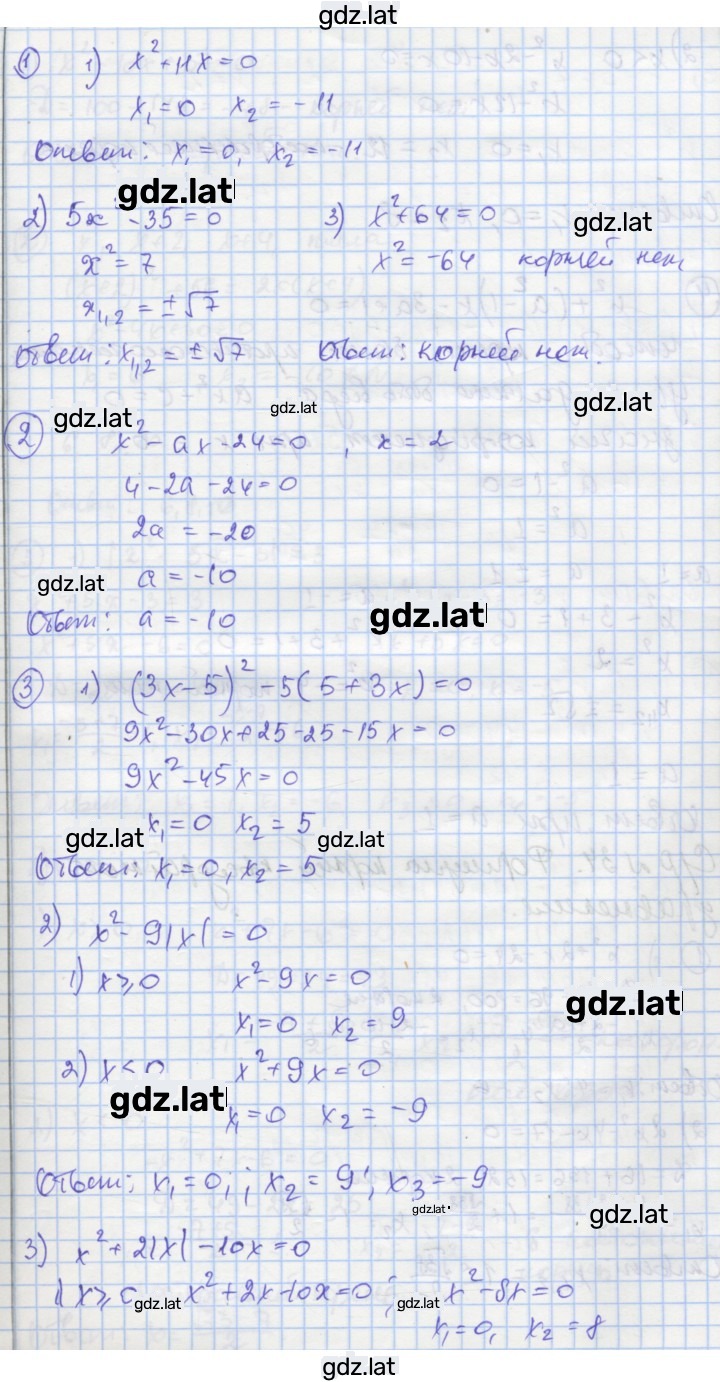 gdz.lat
1 1) x² + 11x = 0
x₁ = 0 x₂ = -11
Ответ: x₁ = 0, x₂ = -11
gdz.lat
2) 5x² - 35 = 0 3) x² + 64 = 0
gdz.lat
x² = 7 x² = -64 корней нет
x₁,₂ = ±√7
Ответ: x₁,₂ = ±√7 Ответ: корней нет.
gdz.lat gdz.lat gdz.lat
2 x² - ax - 24 = 0, x = 2
4 - 2a - 24 = 0
2a = -20
gdz.lat a = -10
Ответ: a = -10 gdz.lat
3 1) (3x - 5)² - 5(5 + 3x) = 0
9x² - 30x + 25 - 25 - 15x = 0
9x² - 45x = 0
x₁ = 0 x₂ = 5
gdz.lat gdz.lat
Ответ: x₁ = 0, x₂ = 5
2) x² - 9|x| = 0
1) x ⩾ 0 x² - 9x = 0
gdz.lat
x₁ = 0 x₂ = 9
2) x < 0 x² + 9x = 0
gdz.lat x₁ = 0 x₂ = -9
Ответ: x₁ = 0; ; x₂ = 9; x₃ = -9
gdz.lat gdz.lat
3) x² + 2|x| - 10x = 0
1) x ⩾ 0 gdz.lat x² + 2x - 10x = 0; gdz.lat x² - 8x = 0
x₁ = 0, x₂ = 8
gdz.lat